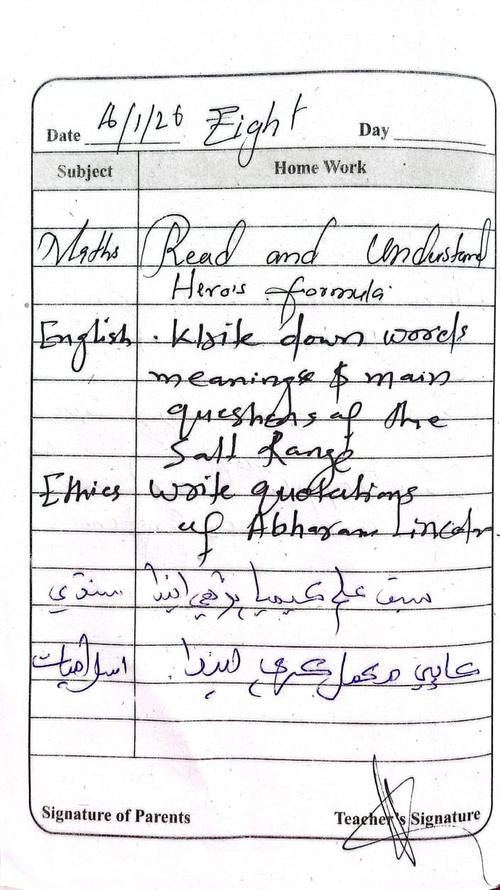 Date 16/1/26 Eight Day
Subject Home Work
Maths Read and Understand
Hero's formula.
English . Write down words
meanings & main
questions of the
Salt Range
Ethics Write quotations
of Abharam Lincoln.
سنڌي سبق علم ڪيميا پڙهي اينداَ
اسلاميات ڪاپي مڪمل ڪري ايندا.
Signature of Parents Teacher's Signature